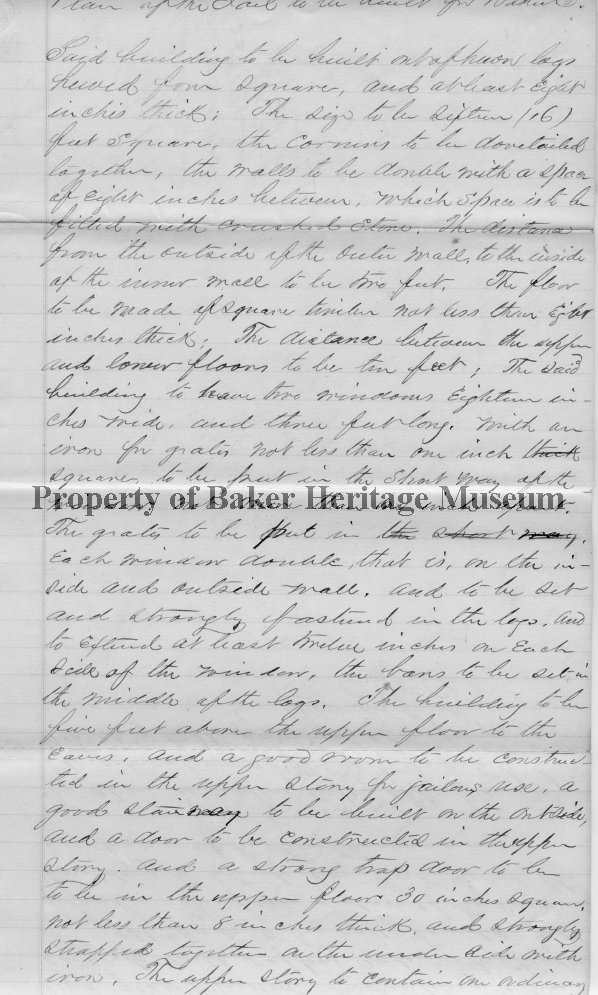 Plan of the Jail to be built for Baker Co.
Said building to be built out of hewn logs
hewed four square, and at least Eight
inches thick; The size to be sixteen (16)
feet square, the corners to be dovetailed
together, the walls to be double with a space
of Eight inches between, which space is to be
filled with crushed stone. The distance
from the outside of the outer wall, to the inside
of the inner wall to be two feet. The floor
to be made of square timber not less than Eight
inches thick; The distance between the upper
and lower floors to be ten feet; The said
building to have two windows Eighteen in-
ches wide, and three feet long. With an
iron for grates not less than one inch thick
square, to be put in the short way of the
Property of Baker Heritage Museum
The grates to be put in the short way.
Each window double, that is, on the in-
side and outside wall. and to be set
and strongly fastend in the logs. and
to Extend at least twelve inches on Each
side of the window, the bars to be set in
the middle of the logs. The building to be
five feet above the upper floor to the
Eaves, and a good room to be construc-
ted in the upper story for jailors use. a
good stairway to be built on the outside,
and a door to be constructed in the upper
story. and a strong trap door to be
to be in the upper floor 30 inches square.
not less than 8 inches thick, and strongly
strapped together on the under side with
iron. The upper story to contain one ordinary